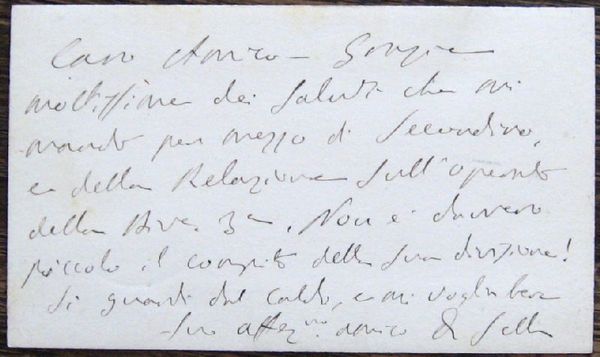 Caro Amico – Grazie
moltissime dei saluti che mi
mandò per mezzo di Secondino,
e della Relazione sull'operato
della Div.e 3a. Non è davvero
piccolo il compito della sua divisione!
Si guardi dal caldo, e mi voglia bene
Suo affez.mo amico Q Sella